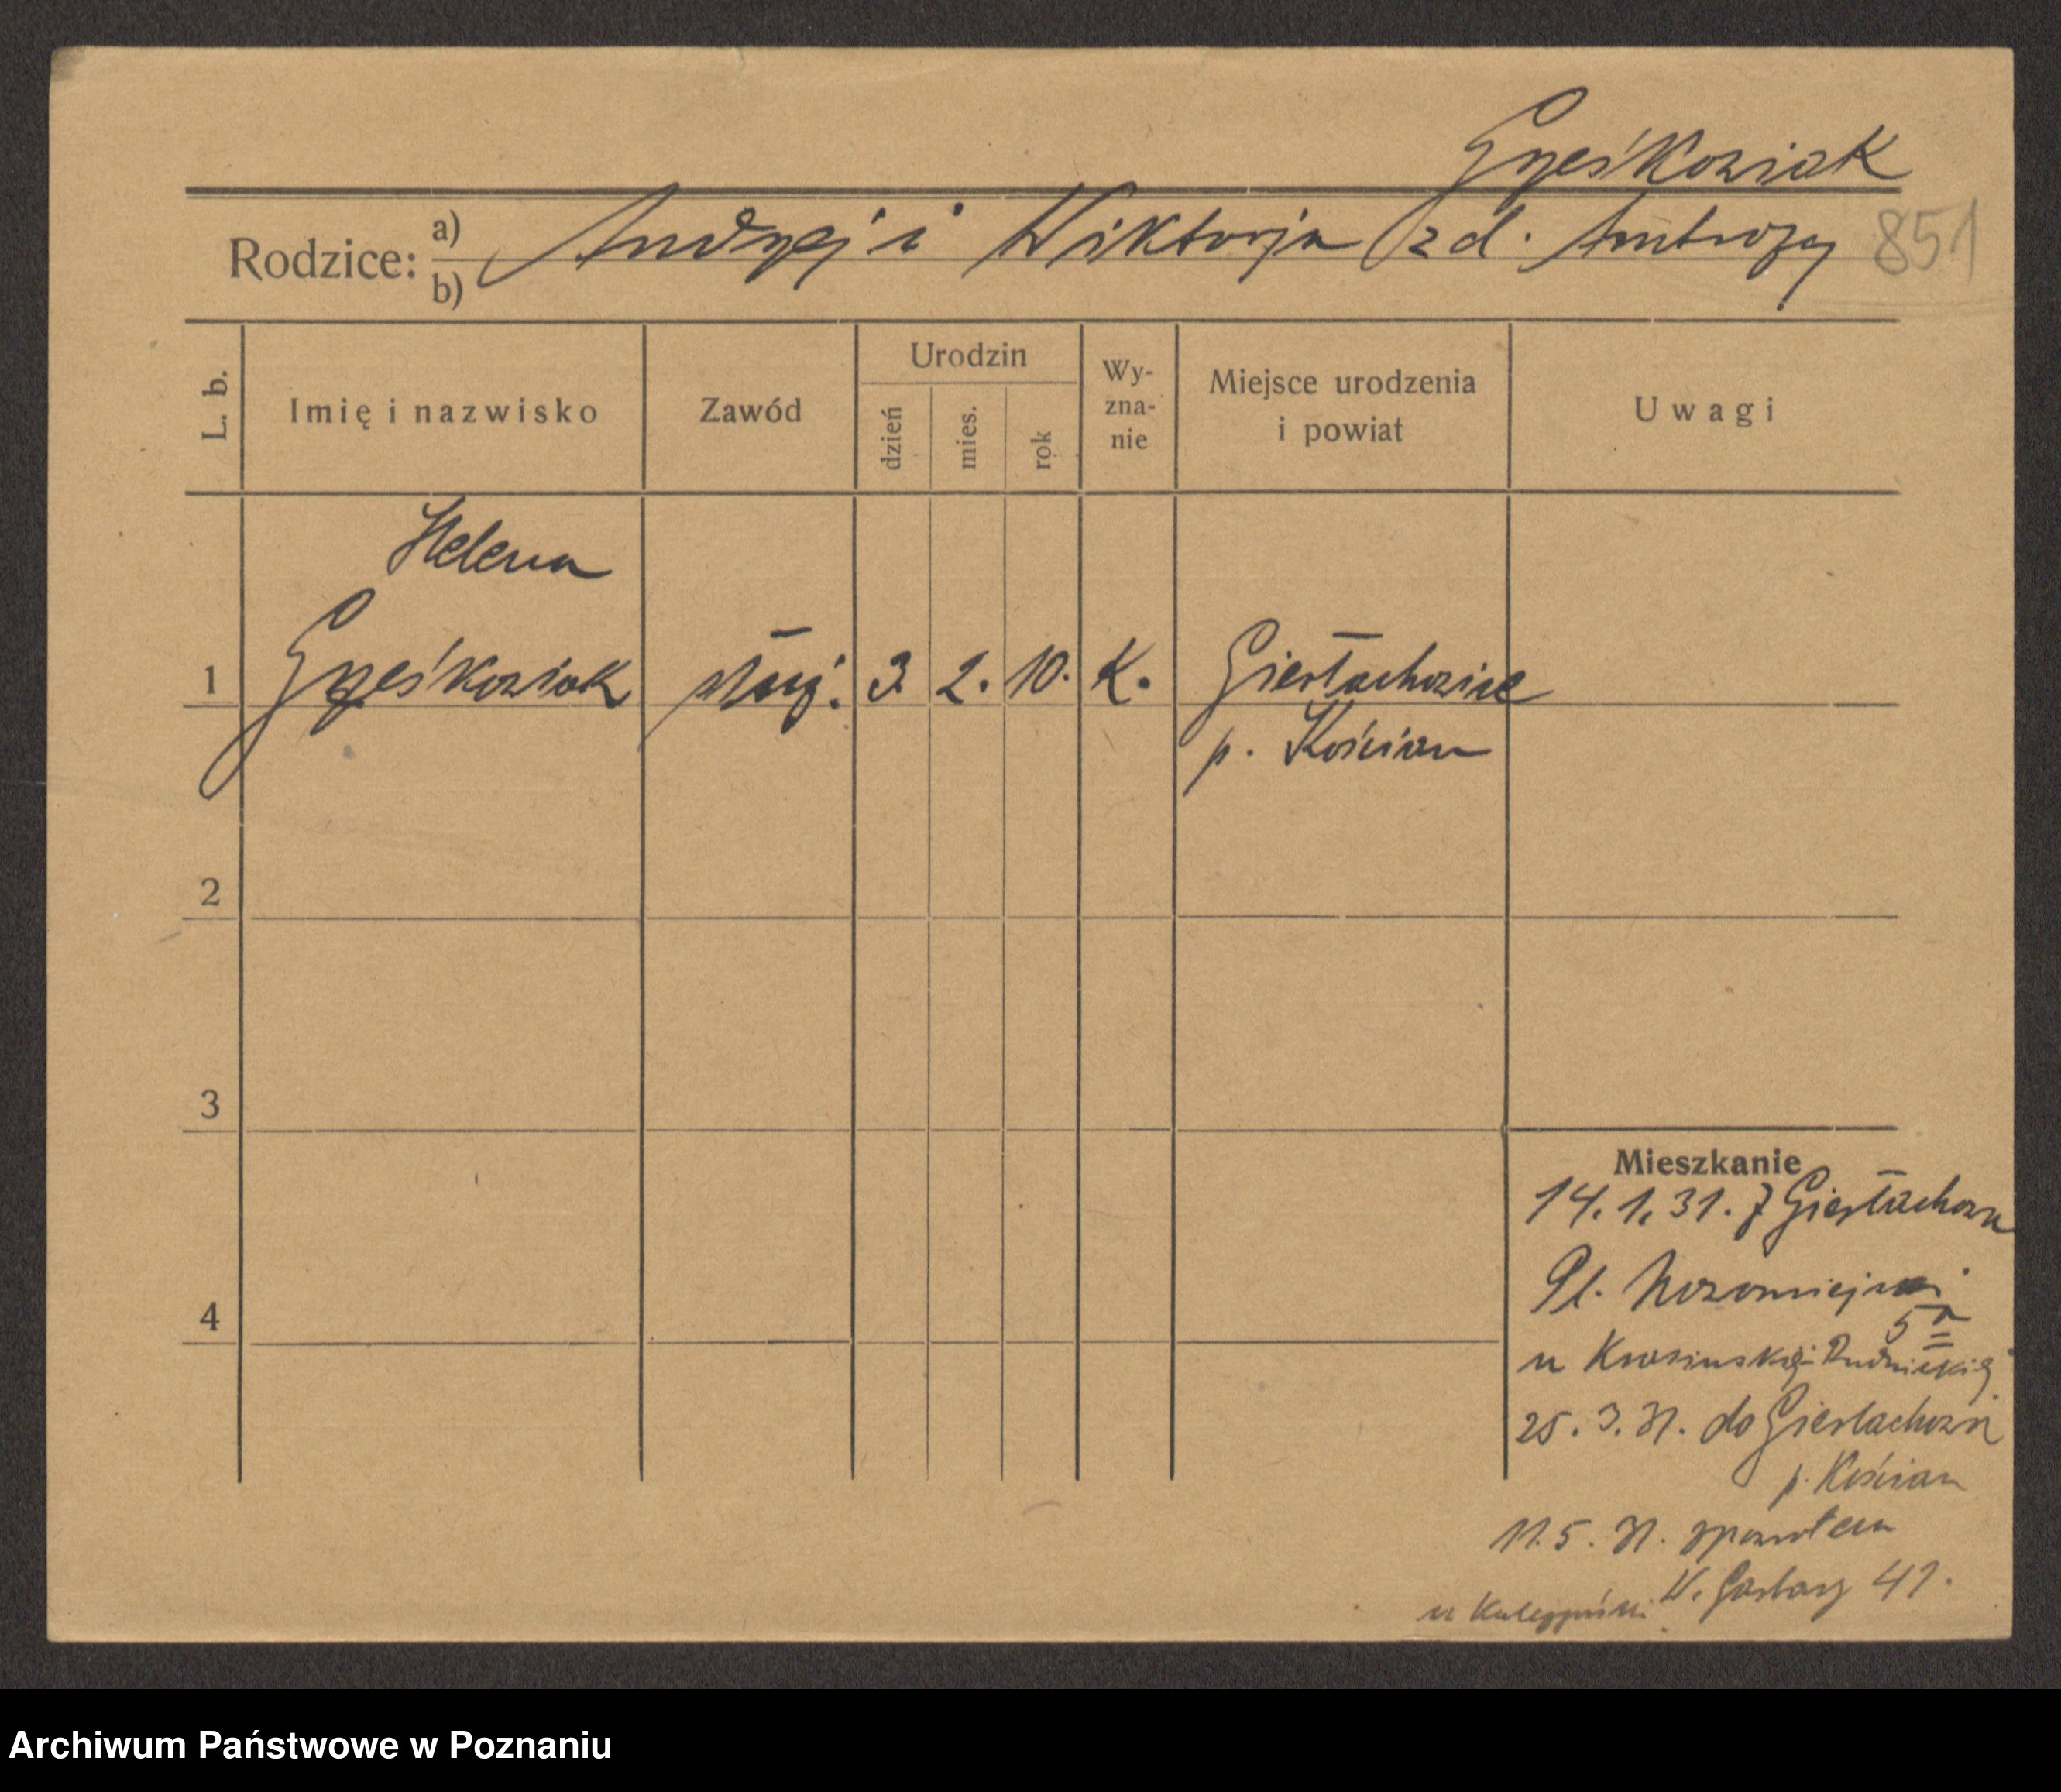 Grześkowiak
Rodzice: a) b) Andrzej i Wiktorja z d. Ambroży 851
L. b. Imię i nazwisko Zawód Urodzin dzień mies. rok Wy-zna-nie Miejsce urodzenia i powiat Uwagi
Helena
1 Grześkowiak służ. 3. 2. 10. K. Gierłachowice
p. Kościan
2
3
Mieszkanie
14. 1. 31. z Gierłachow
4
Pl. Nowomiejski
5a
u Krasinskiej-Rudnickiej
25. 3. 31. do Gierłachow
p. Kościan
11. 5. 31. zpowrotem
W. Garbary 41.
u
Archiwum Państwowe w Poznaniu